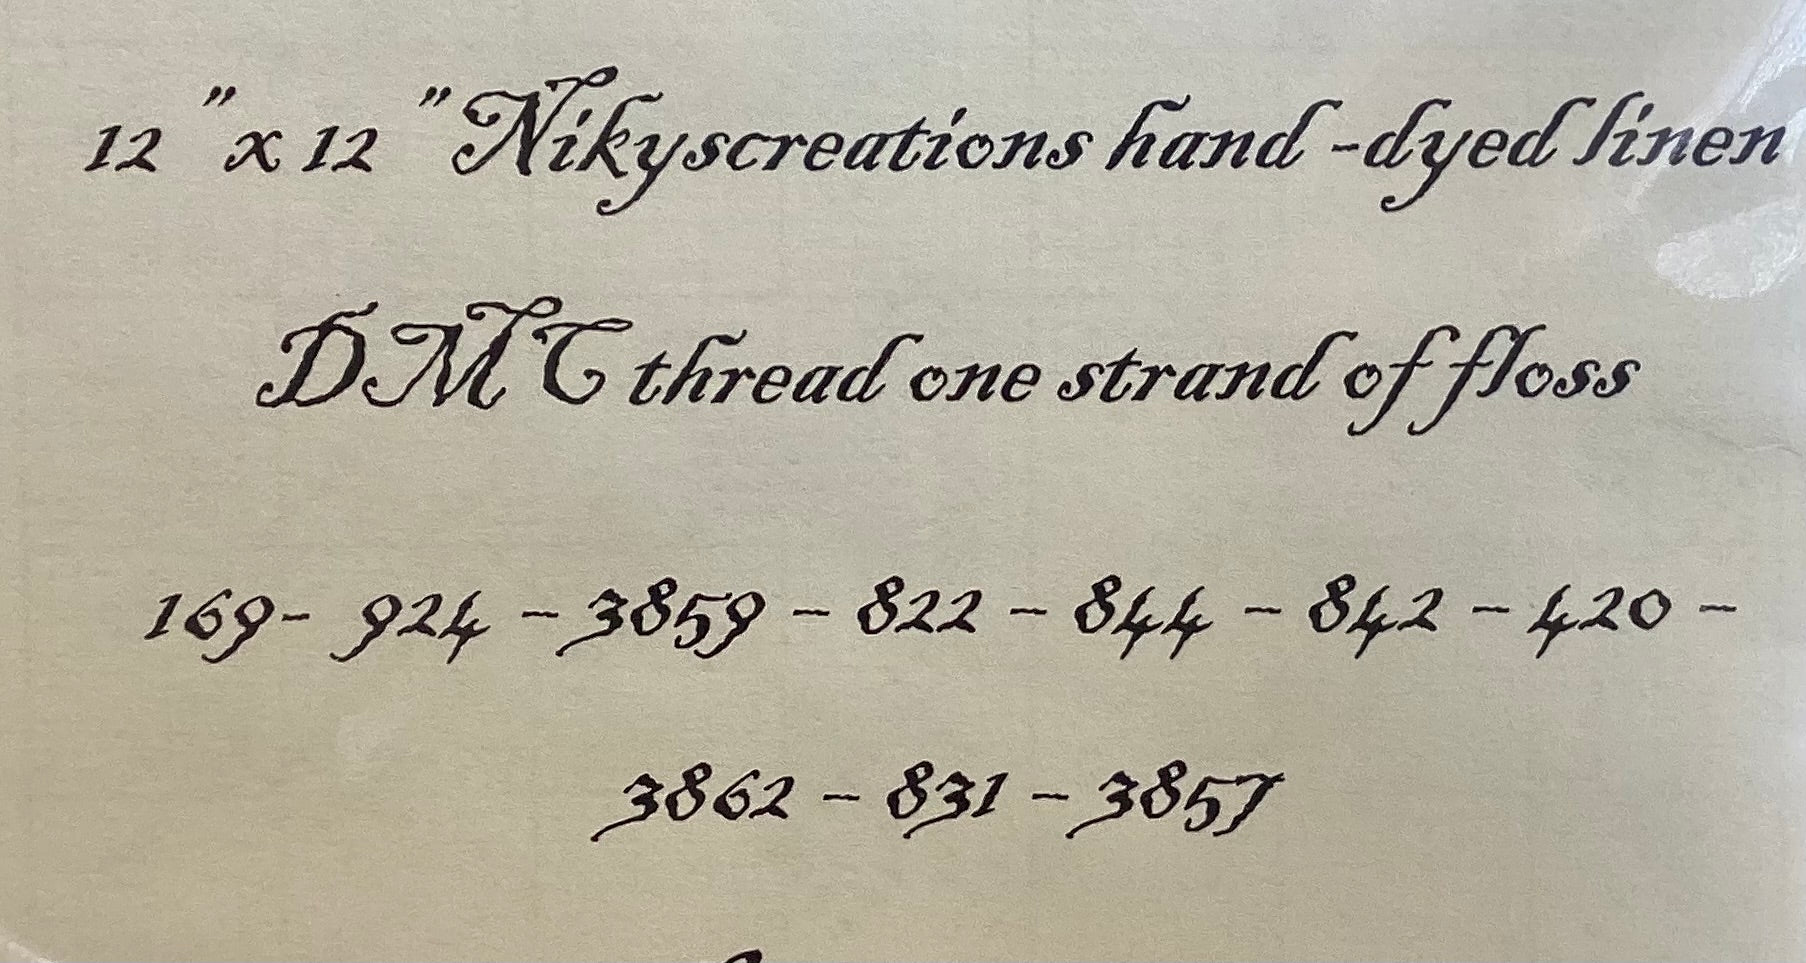 12 "x 12 "Nikyscreations hand -dyed linen
DMC thread one strand of floss
169- 924 - 3859 - 822 - 844 - 842 - 420 -
3862 - 831 - 3857